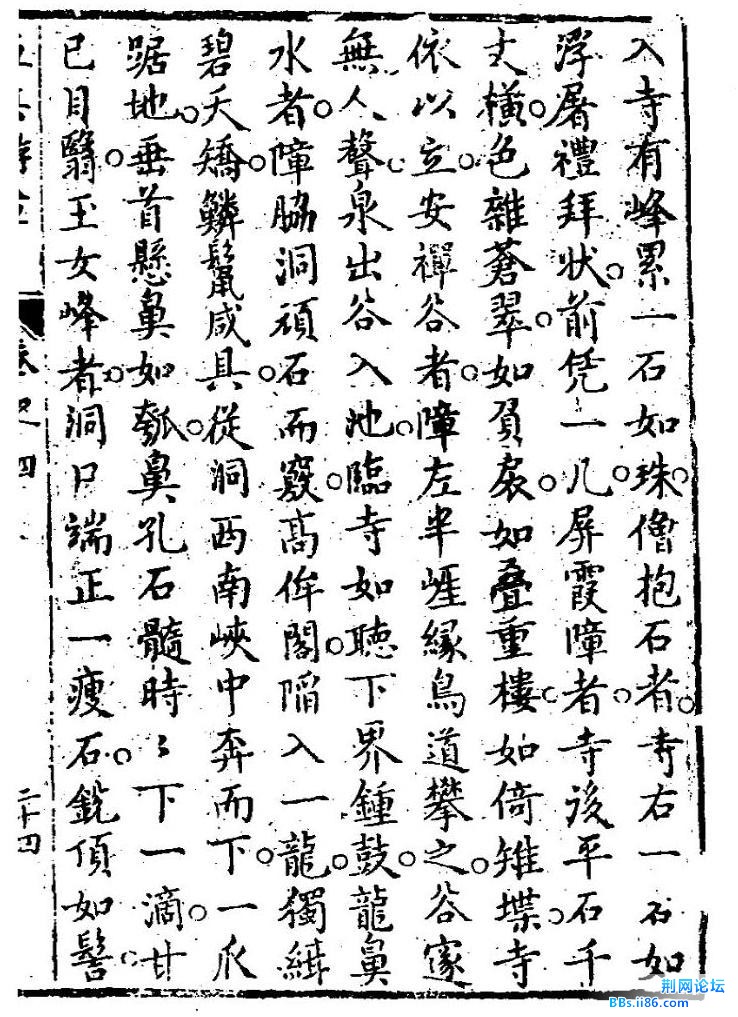 入寺有峰累一石如珠僧抱石者寺右一石如
浮屠禮拜狀前凭一几屏霞障者寺後平石千
丈橫色雜蒼翠如負扆如疊重樓如倚雉堞寺
依以立安禪谷者障左半崕緣鳥道攀之谷邃
無人聲泉出谷入池臨寺如聽下界鍾鼓龍鼻
水者障脇洞頑石而竅高侔閣陷入一龍獨緋
碧夭矯鱗鬛咸具從洞西南峽中奔而下一爪
踞地垂首懸鼻如瓠鼻孔石髓時〻下一滴甘
已目翳玉女峰者洞口端正一瘦石銳頂如髻
卷之四
二十四
荆网论坛
BBs.ii86.com